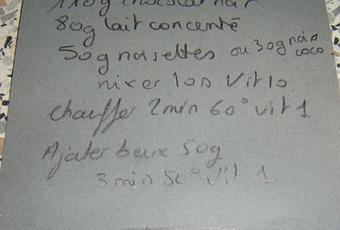 110g chocolat noir
80g lait concenté
50g noisettes ou 30g noix coco
mixer 10s Vit 10
chauffer 2min 60° vit 1
Ajouter beurre 50g
3 min 50° Vit 1